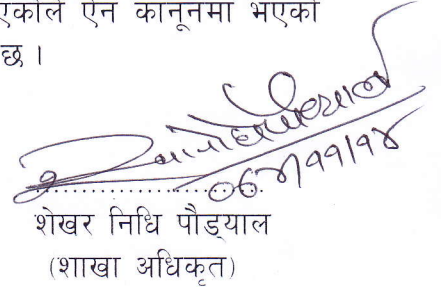 एकोले ऐन कानूनमा भएको
छ ।
०६४/११/१४
शेखर निधि पौड्याल
(शाखा अधिकृत)